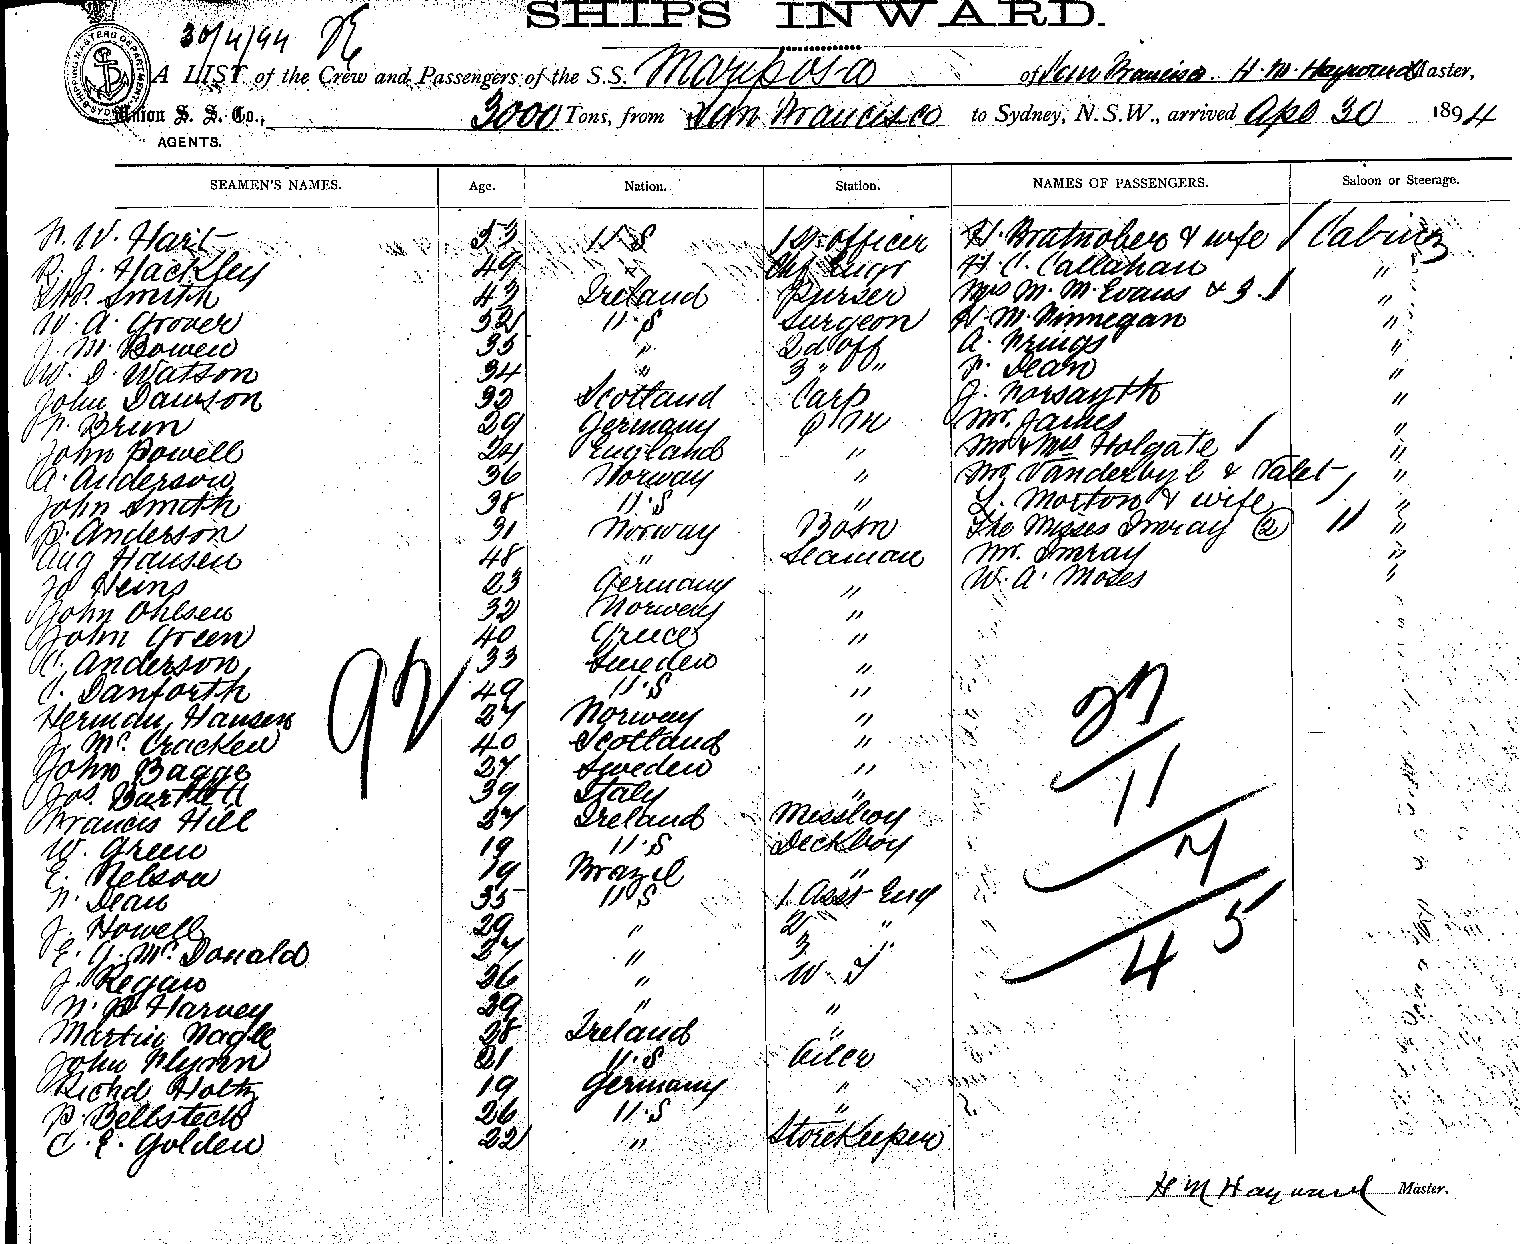 SHIPS INWARD.
30/4/94
A LIST of the Crew and Passengers of the S.S. Mariposa of San Francisco. H. M. Hayward Master,
Union S. S. Co., 3000 Tons, from San Francisco to Sydney, N.S.W., arrived Apl 30 1894
AGENTS.
SEAMEN'S NAMES. Age. Nation. Station. NAMES OF PASSENGERS. Saloon or Steerage.
F. W. Hart 53 U.S 1st officer H. Bratnober & wife / Cabin
R. J. Hackley 49 " Chf Engr H. C. Callahan "
Thos. Smith 43 Ireland Purser Mrs M. M. Evans & 3. / "
W. A. Grover 52 U.S Surgeon H. M. Finnegan "
J. M. Bowen 35 " 2d off A. Frings "
W. J. Watson 34 " 3 " " F. Dean "
John Dawson 32 Scotland Carp J. Forsayth "
F. Brun 29 Germany Q M Mr. James "
John Powell 24 England " Mr & Mrs Holgate / "
A. Anderson 36 Norway " Mr Vanderbyl & Valet / "
John Smith 38 U.S " L. Morton & wife "
P. Anderson 31 Norway Bosn The Misses Imray (2) 11 "
Aug Hansen 48 " Seaman Mr. Imray "
Jo Heins 23 Germany " W. A. Moses "
John Ohlsen 32 Norway " "
John Green 40 Greece " "
C. Anderson 33 Sweden "
C. Danforth 49 U.S "
Herman Hansen 27 Norway "
J. McCracken 40 Scotland "
John Bagge 27 Sweden "
Jos. Bartlett 39 Italy "
Francis Hill 27 Ireland Messboy
W. Green 19 U.S Deckboy
E. Nelson 19 Brazil "
F. Dean 35 U.S 1 Asst Eng
J. Howell 29 " 2 "
E. A. McDonald 27 " 3 "
J. Regan 26 " W T
F. P. Harvey 29 " "
Martin Nagle 28 Ireland "
John Flynn 21 U.S Oiler
Richd Holtz 19 Germany "
P. Bellstedt 26 U.S "
C. E. Golden 22 " Storekeeper
92
27
11
4
5
4
H M Hayward Master.